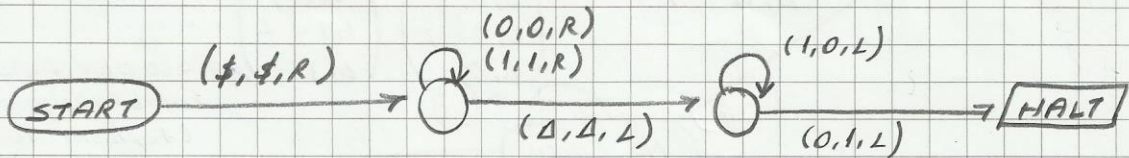 START
($,$,R)
(0,0,R)
(1,1,R)
(Δ,Δ,L)
(1,0,L)
(0,1,L)
HALT